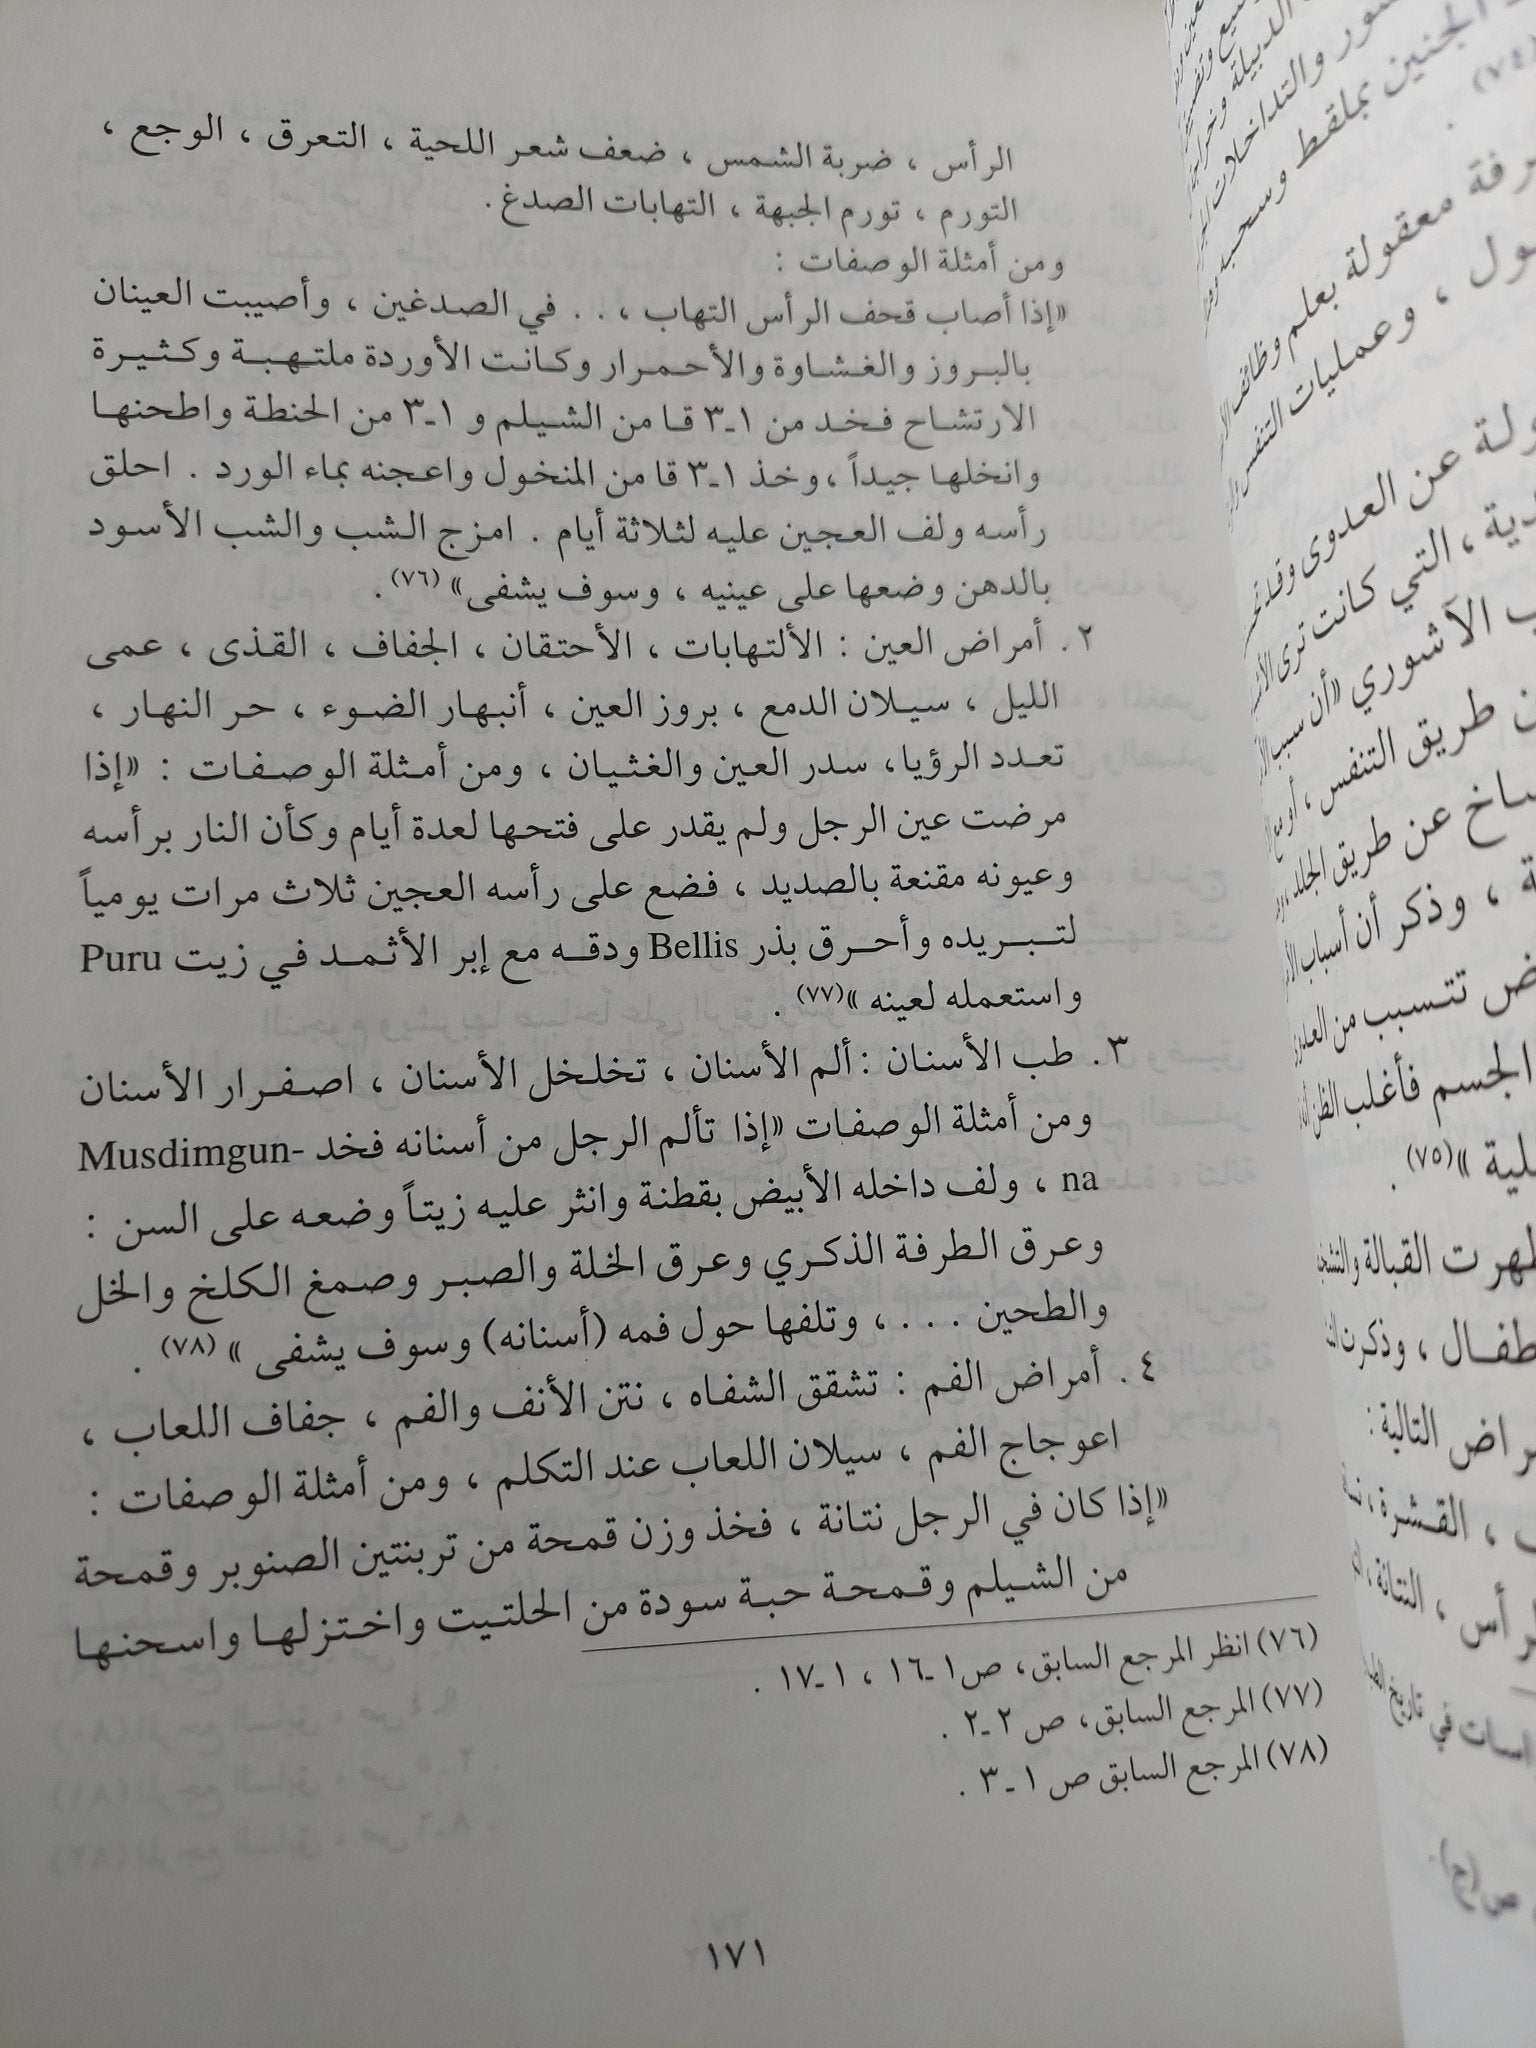 الرأس ، ضربة الشمس ، ضعف شعر اللحية ، التعرق ، الوجع ،
التورم ، تورم الجبهة ، التهابات الصدغ .
ومن أمثلة الوصفات :
«إذا أصاب قحف الرأس التهاب ، . . في الصدغين ، وأصيبت العينان
بالبروز والغشاوة والأحمرار وكانت الأوردة ملتهبة وكثيرة
الارتشاح فخد من ١-٣ قا من الشيلم و ١-٣ من الحنطة واطحنها
وانخلها جيداً ، وخذ ١-٣ قا من المنخول واعجنه بماء الورد . احلق
رأسه ولف العجين عليه لثلاثة أيام . امزج الشب والشب الأسود
بالدهن وضعها على عينيه ، وسوف يشفى» (٧٦) .
٢ . أمراض العين : الألتهابات ، الأحتقان ، الجفاف ، القذى ، عمى
الليل ، سيلان الدمع ، بروز العين ، أنبهار الضوء ، حر النهار ،
تعدد الرؤيا، سدر العين والغثيان ، ومن أمثلة الوصفات : «إذا
مرضت عين الرجل ولم يقدر على فتحها لعدة أيام وكأن النار برأسه
وعيونه مقنعة بالصديد ، فضع على رأسه العجين ثلاث مرات يومياً
لتبريده وأحرق بذر Bellis ودقه مع إبر الأثمد في زيت Puru
واستعمله لعينه »(٧٧) .
٣ . طب الأسنان : ألم الأسنان ، تخلخل الأسنان ، اصفرار الأسنان
ومن أمثلة الوصفات «إذا تألم الرجل من أسنانه فخد Musdimgun-
na ، ولف داخله الأبيض بقطنة وانثر عليه زيتاً وضعه على السن :
وعرق الطرفة الذكري وعرق الخلة والصبر وصمغ الكلخ والخل
والطحين . . . ، وتلفها حول فمه (أسنانه) وسوف يشفى » (٧٨) .
٤ . أمراض الفم : تشقق الشفاه ، نتن الأنف والفم ، جفاف اللعاب ،
اعوجاج الفم ، سيلان اللعاب عند التكلم ، ومن أمثلة الوصفات :
«إذا كان في الرجل نتانة ، فخذ وزن قمحة من تربنتين الصنوبر وقمحة
من الشيلم وقمحة حبة سودة من الحلتيت واختزلها واسحنها
(٧٦) انظر المرجع السابق، ص١-١٦ ، ١-١٧ .
(٧٧) المرجع السابق، ص ٢-٢ .
(٧٨) المرجع السابق ص ١-٣ .
١٧١
الجنين بملقط وسحبه
(٧٤)
معقولة بعلم وظائف
، وعمليات التنفس
عن العدوى وقد
، التي كانت ترى
الآشوري «أن سبب
طريق التنفس ، أو
عن طريق الجلد
، وذكر أن أسباب
تتسبب من
الجسم فأغلب الظن
»(٧٥) .
القبالة
، وذكرت
التالية :
، القشرة ،
، النتانة ،
في تاريخ